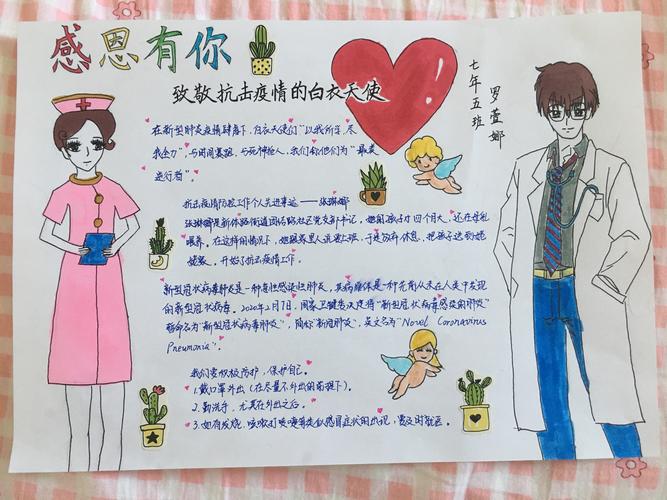 感恩有你
致敬抗击疫情的白衣天使
七年五班
罗萱娜
在新型肺炎疫情肆虐下，白衣天使们“以我所学，尽
我全力”，与时间赛跑，与死神抢人，我们称他们为“最美
逆行者”。
抗击疫情防控工作个人先进事迹——张琳娜
张琳娜是新体路街道团结路社区党支部书记，她的孩子才四个月大，还在母乳
喂养。在这样的情况下，她跟家里人说要上班，于是没有休息，把孩子送到姥
姥家，开始了抗击疫情工作。
新型冠状病毒肺炎是一种急性感染性肺炎，其病原体是一种先前从未在人类中发现
的新型冠状病毒。2020年2月7日，国家卫健委决定将“新型冠状病毒感染的肺炎”
暂命名为“新型冠状病毒肺炎”，简称“新冠肺炎”，英文名为“Novel Coronavirus
Pneumonia”。
我们要积极防护，保护自己。
1.戴口罩外出（在尽量不外出的前提下）。
2.勤洗手，尤其在外出之后。
3.如有发烧，咳嗽打喷嚏等类似感冒症状的出现，要及时就医。